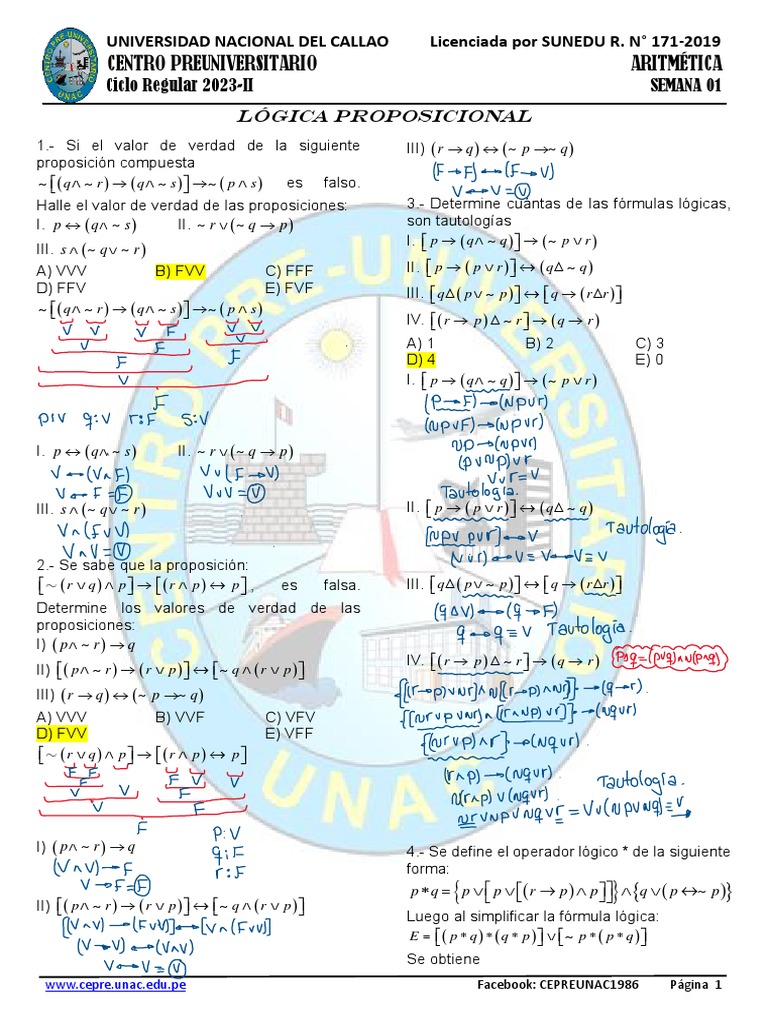 UNIVERSIDAD NACIONAL DEL CALLAO Licenciada por SUNEDU R. N° 171-2019
CENTRO PREUNIVERSITARIO ARITMÉTICA
Ciclo Regular 2023-II SEMANA 01
LÓGICA PROPOSICIONAL
1.- Si el valor de verdad de la siguiente
proposición compuesta
~[(q∧~r)→(q∧~s)]→~(p∧s) es falso.
Halle el valor de verdad de las proposiciones:
I. p↔(q∧~s) II. ~r∨(~q→p)
III. s∧(~q∨~r)
A) VVV B) FVV C) FFF
D) FFV E) FVF
~[(q∧~r)→(q∧~s)]→~(p∧s)
V V V F V V
V F V
F F
V
F
p:V q:V r:F S:V
I. p↔(q∧~s) II. ~r∨(~q→p)
V↔(V∧F) V∨(F→V)
V↔F=F V∨V=V
III. s∧(~q∨~r)
V∧(F∨V)
V∧V=V
2.- Se sabe que la proposición:
[~(r∨q)∧p]→[(r∧p)↔p], es falsa.
Determine los valores de verdad de las
proposiciones:
I) (p∧~r)→q
II) [(p∧~r)→(r∨p)]↔[~q∧(r∨p)]
III) (r→q)↔(~p→~q)
A) VVV B) VVF C) VFV
D) FVV E) VFF
[~(r∨q)∧p]→[(r∧p)↔p]
F F F V V
F V V F
V F
F
p:V
q:F
r:F
I) (p∧~r)→q
(V∧V)→F
V→F=F
II) [(p∧~r)→(r∨p)]↔[~q∧(r∨p)]
[(V∧V)→(F∨V)]↔[V∧(F∨V)]
(V→V)↔(V∧V)
V↔V=V
III) (r→q)↔(~p→~q)
(F→F)↔(F→V)
V↔V=V
3.- Determine cuántas de las fórmulas lógicas,
son tautologías
I. [p→(q∧~q)]→(~p∨r)
II. [p→(p∨r)]↔(qΔ~q)
III. [qΔ(p∨~p)]↔[q→(rΔr)]
IV. [(r→p)Δ~r]→(q→r)
A) 1 B) 2 C) 3
D) 4 E) 0
I. [p→(q∧~q)]→(~p∨r)
(p→F)→(~p∨r)
(~p∨F)→(~p∨r)
~p→(~p∨r)
(p∨~p)∨r
V∨r=V
Tautología.
II. [p→(p∨r)]↔(qΔ~q)
[~p∨ p∨r]↔V
(V∨r)↔V≡V↔V≡V
Tautología.
III. [qΔ(p∨~p)]↔[q→(rΔr)]
(qΔV)↔(q→F)
q↔q≡V Tautología.
IV. [(r→p)Δ~r]→(q→r) pΔq=(p∨q)∧~(p∧q)
{[(r→p)∨~r]∧~[(r→p)∧~r]}→(q→r).
{[~r∨p∨~r]∧[(r∧~p)∨r]}→(~q∨r)
{[~r∨p)∧r}→(~q∨r)
(r∧p)→(~q∨r)
~(r∧p)∨(~q∨r)
~r∨~p∨~q∨r=V∨(~p∨~q)≡V
Tautología.
4.- Se define el operador lógico * de la siguiente
forma:
p*q={p∨[p∨[(r→p)∧p]]}∧{q∨(p↔~p)}
Luego al simplificar la fórmula lógica:
E=[(p*q)*(q*p)]∨[~p*(p*q)]
Se obtiene
www.cepre.unac.edu.pe Facebook: CEPREUNAC1986 Página 1
CENTRO PRE-UNIVERSITARIO
UNAC